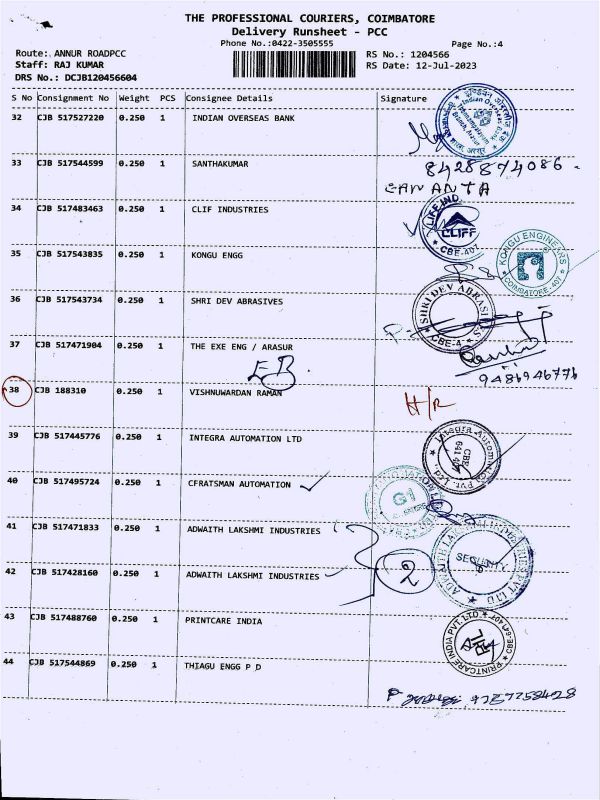 THE PROFESSIONAL COURIERS, COIMBATORE
Delivery Runsheet - PCC
Phone No.:0422-3505555
Page No.:4
Route: ANNUR ROADPCC
RS No.: 1204566
Staff: RAJ KUMAR
RS Date: 12-Jul-2023
DRS No.: DCJB120456604
S No Consignment No Weight PCS Consignee Details Signature
32 CJB 517527220 0.250 1 INDIAN OVERSEAS BANK
Indian Overseas
33 CJB 517544599 0.250 1 SANTHAKUMAR
8428874086
34 CJB 517483463 0.250 1 CLIF INDUSTRIES
CLIFF
CBE-407
35 CJB 517543835 0.250 1 KONGU ENGG
KONGU ENGINEERS
COIMBATORE-407
36 CJB 517543734 0.250 1 SHRI DEV ABRASIVES
SHRI DEV ABRASI
CBE-4
37 CJB 517471904 0.250 1 THE EXE ENG / ARASUR
EB
38 CJB 188310 0.250 1 VISHNUWARDAN RAMAN
H/R
39 CJB 517445776 0.250 1 INTEGRA AUTOMATION LTD
Integra Automation Pvt. Ltd.
CBE
40 CJB 517495724 0.250 1 CFRATSMAN AUTOMATION
G1
41 CJB 517471833 0.250 1 ADWAITH LAKSHMI INDUSTRIES
SECURITY
42 CJB 517428160 0.250 1 ADWAITH LAKSHMI INDUSTRIES
2
43 CJB 517488760 0.250 1 PRINTCARE INDIA
PRINTCARE INDIA PVT. LTD.
44 CJB 517544869 0.250 1 THIAGU ENGG P D